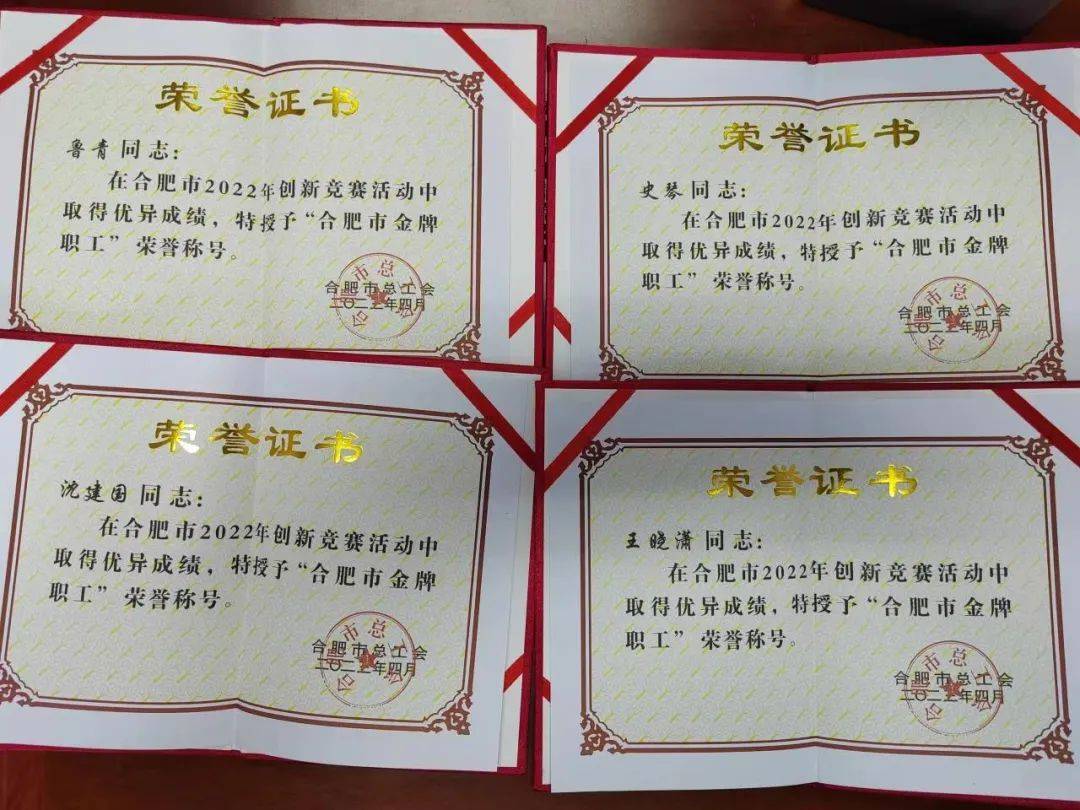 荣誉证书
鲁青同志：
在合肥市2022年创新竞赛活动中
取得优异成绩，特授予“合肥市金牌
职工”荣誉称号。
合肥市总工会
荣誉证书
史琴同志：
在合肥市2022年创新竞赛活动中
取得优异成绩，特授予“合肥市金牌
职工”荣誉称号。
合肥市总工会
荣誉证书
沈建国同志：
在合肥市2022年创新竞赛活动中
取得优异成绩，特授予“合肥市金牌
职工”荣誉称号。
合肥市总工会
荣誉证书
王晓潇同志：
在合肥市2022年创新竞赛活动中
取得优异成绩，特授予“合肥市金牌
职工”荣誉称号。
合肥市总工会